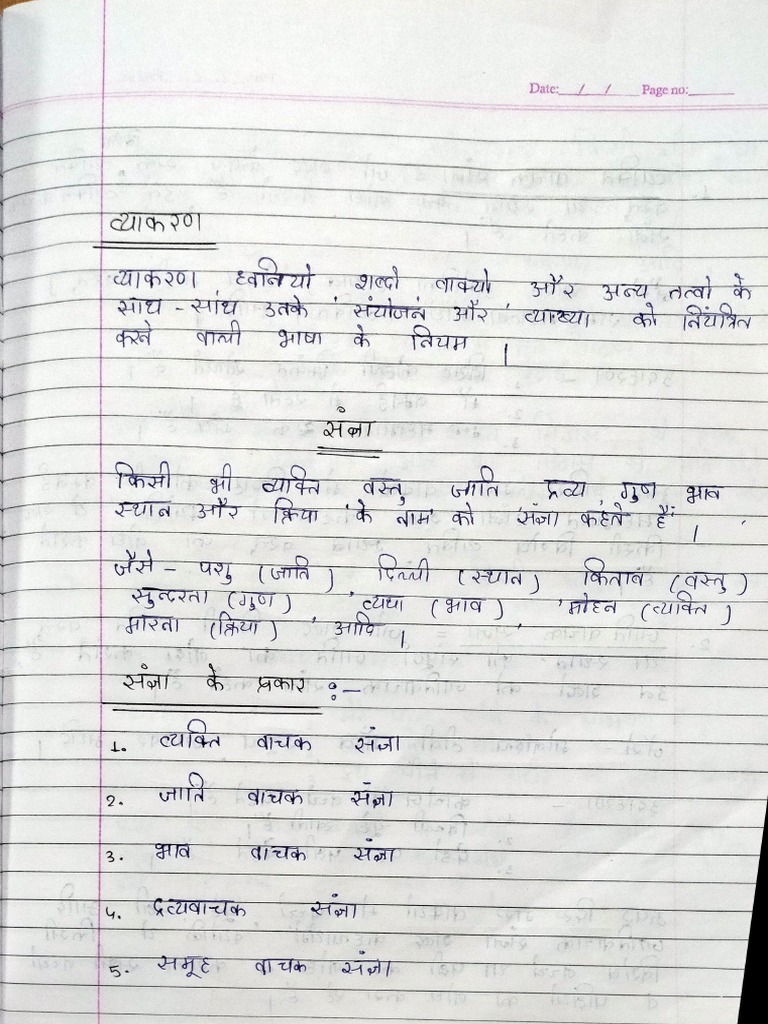 Date:__/__/__ Page no:______
व्याकरण
व्याकरण ध्वनियो शब्दो वाक्यो और अन्य तत्वो के
साथ - साथ उनके संयोजन और व्याख्या को नियंत्रित
करने वाली भाषा के नियम |
संज्ञा
किसी भी व्यक्ति वस्तु जाति द्रव्य गुण भाव
स्थान और क्रिया के नाम को संज्ञा कहते हैं |
जैसे - पशु (जाति) दिल्ली (स्थान) किताब (वस्तु)
सुन्दरता (गुण) , व्यथा (भाव) , मोहन (व्यक्ति)
मारना (क्रिया) , आदि |
संज्ञा के प्रकार :-
1. व्यक्ति वाचक संज्ञा
2. जाति वाचक संज्ञा
3. भाव वाचक संज्ञा
4. द्रव्यवाचक संज्ञा
5. समूह वाचक संज्ञा